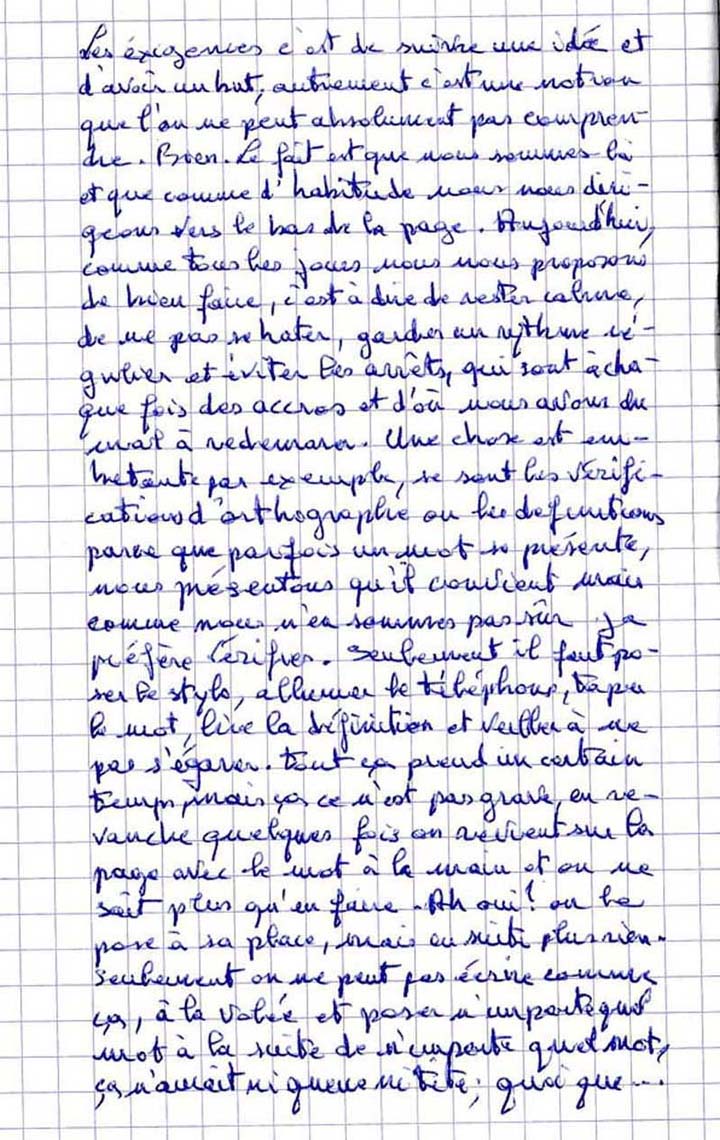 Les éxigences c'est de suivre une idée et
d'avoir un but, autrement c'est une notion
que l'on ne peut absolument pas compren-
dre. Bien. Le fait est que nous sommes là
et que comme d'habitude nous nous diri-
geons vers le bas de la page. Aujourd'hui,
comme tous les jours nous nous proposons
de bien faire, c'est à dire de rester calme,
de ne pas se hater, garder un rythme ré-
gulier et éviter les arrêts, qui sont à cha-
que fois des accros et d'où nous avons du
mal à redemarer. Une chose est em-
betante par exemple, se sont les vérifi-
cations d'orthographe ou les définitions
parce que parfois un mot se présente,
nous présentons qu'il convient mais
comme nous n'en sommes pas sûr je
préfère vérifier. Seulement il faut po-
ser le stylo, allumer le téléphone, taper
le mot, lire la définition et veiller à ne
pas s'égarer. Tout ça prend un certain
temps, mais ça ce n'est pas grave, en re-
vanche quelques fois on revient sur la
page avec le mot à la main et on ne
sait plus qu'en faire. Ah oui! on le
pose à sa place, mais ensuite plus rien.
Seulement on ne peut pas écrire comme
ça, à la volée et poser n'importe quel
mot à la suite de n'importe quel mot,
ça n'aurait ni queue ni tête; quoi que...